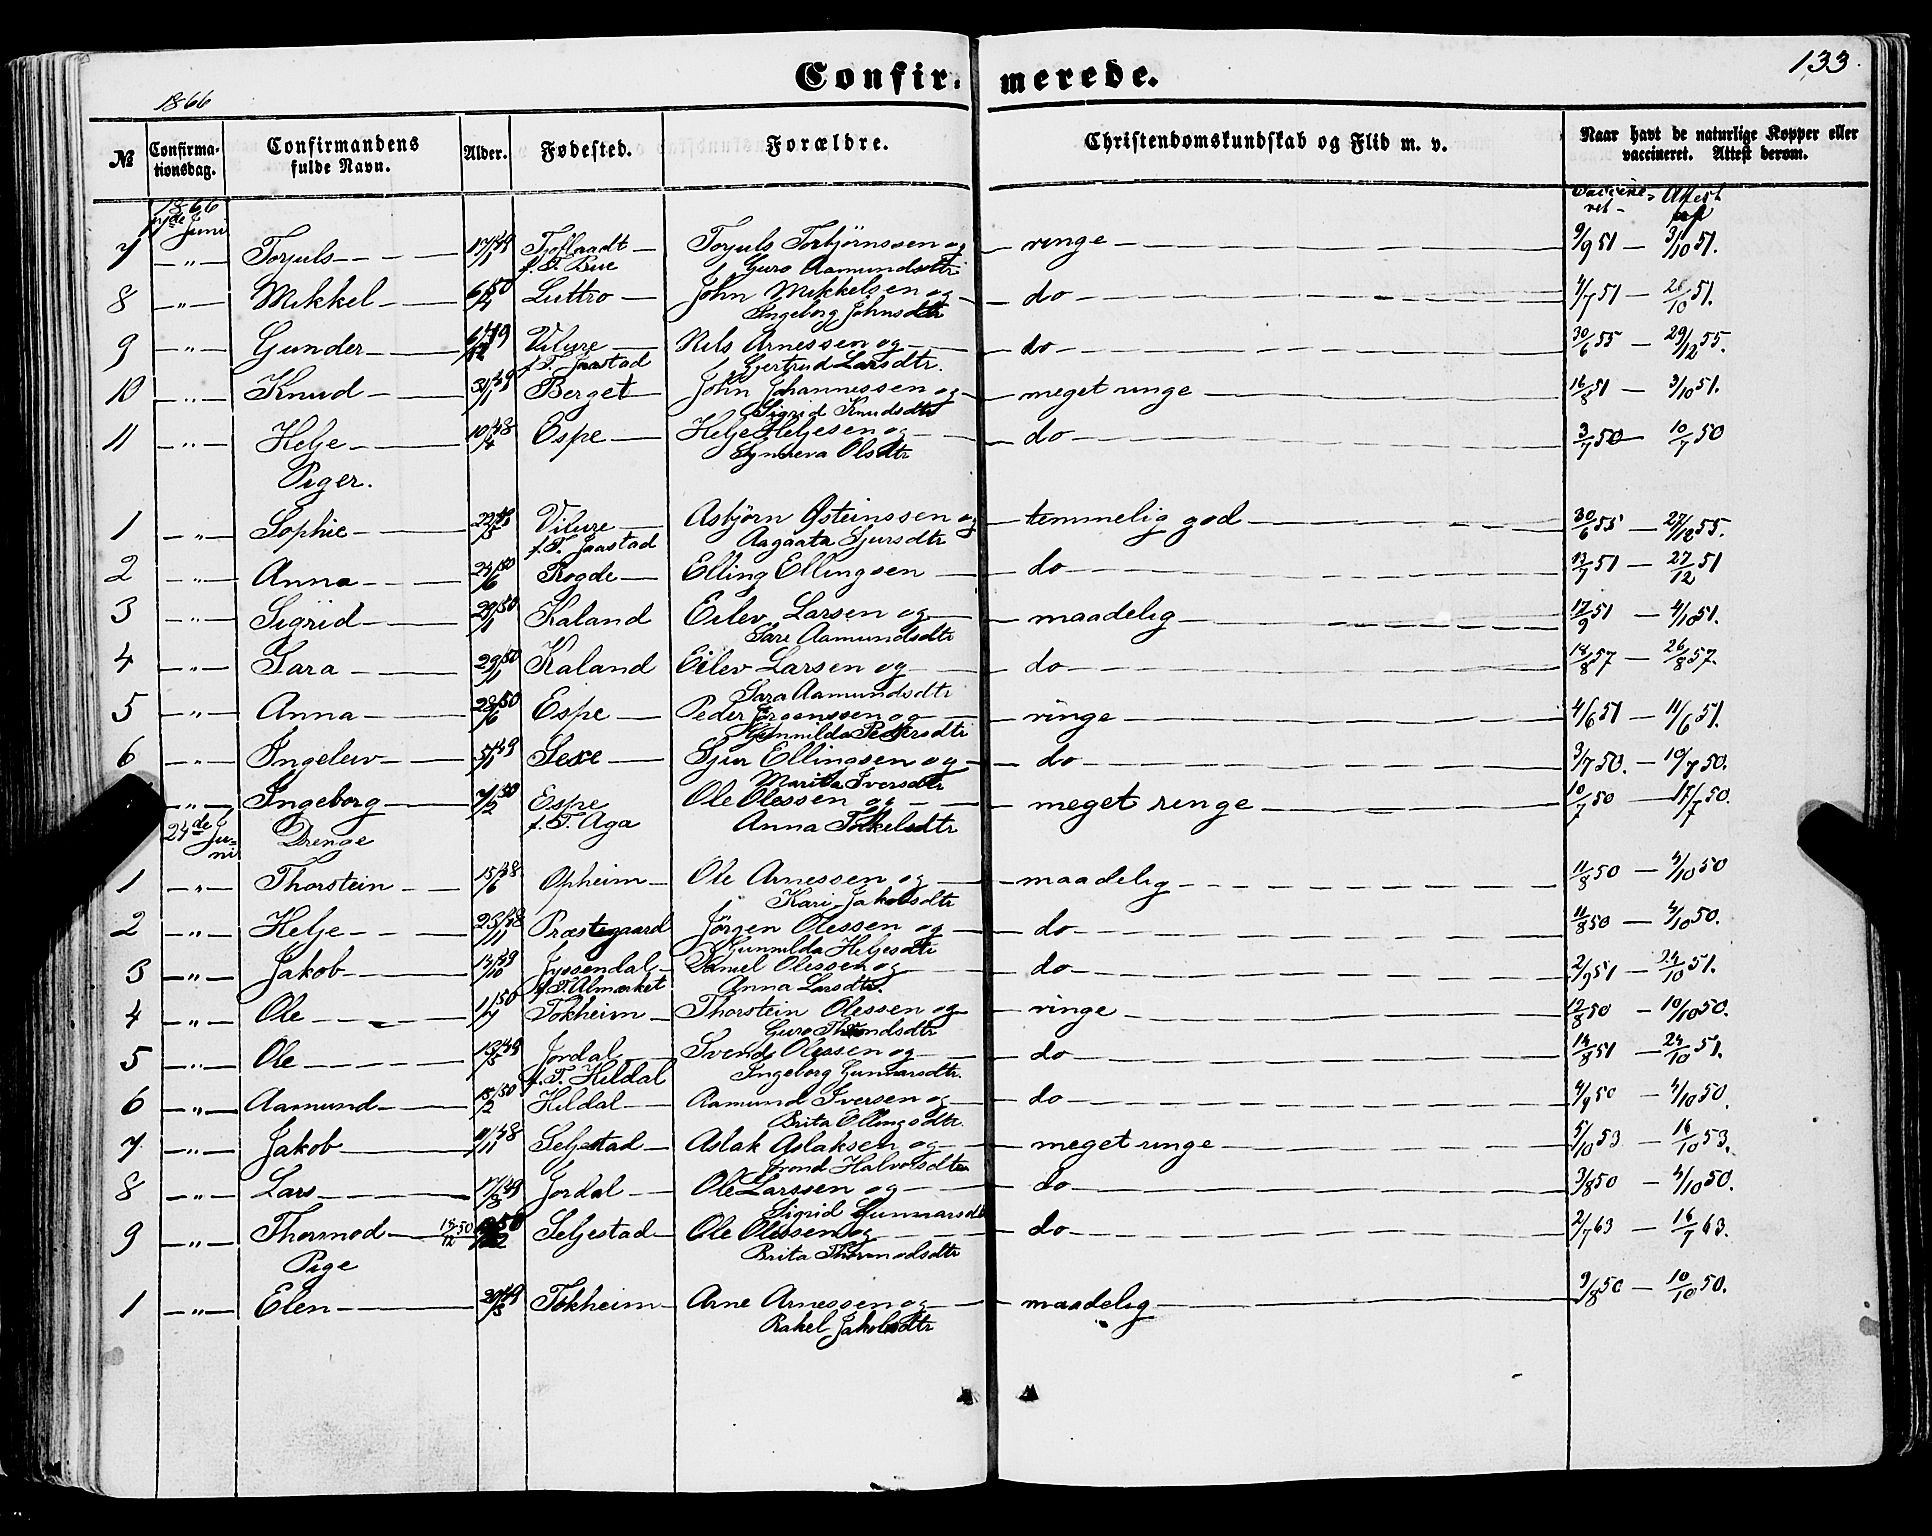 133.
Confir- merede.
1866
№ Confirma- Confirmandens Alder. Fødested. Forældre. Christendomskundskab og Flid m. v. Naar havt de naturlige Kopper eller
tionsdag. fulde Navn. vaccineret. Attest derom.
1866 Attest
Juni
7 " Torjuls Tjoflaadt Torjuls Torbjørnssen og ringe 9/9 51 3/10 51.
f. T. Bue Guro Aamundsdtr
8 " Mikkel 6/4 50 Luttro John Mikkelsen og do 4/7 51 28/10 51.
Ingeborg Johnsdtr
9 " Gunder 6/12 49 Vilure Nils Arnessen og do 30/6 55 29/12 55.
f. T. Jaastad Gjertrud Larsdtr.
10 " Knud Berget John Johannessen og meget ringe 16/8 51 3/10 51.
Sigrid Knudsdtr
11 " Helje 10/4 48 Espe Helje Heljesen og do 3/7 50 10/7 50
Synneva Olsdtr
Piger.
1 " Sophie Vilure Asbjörn Østeinssen og temmelig god 30/6 55 27/12 55.
f. T. Jaastad Aagaata Sjursdtr
2 " Anna 24/6 50 Rogde Elling Ellingsen do 13/7 51 27/12 51
3 " Sigrid 29/1 50 Kaland Eilev Larsen og maadelig 17/9 51 4/10 51.
Sare Aamundsdtr
4 " Sara 29/1 50 Kaland Eilev Larsen og do 18/8 57 26/8 57.
Sara Aamundsdtr
5 " Anna 28/6 50 Espe Peder Jörgenssen og ringe 4/6 51 11/6 51.
Gunnilda Pedersdtr
6 " Ingelew Sexe Sjur Ellingsen og do 3/7 50. 10/7 50.
Marita Iversdtr
" Ingeborg 7/2 50 Espe Ole Olessen og meget ringe 10/7 50 17/7 50.
f. T. Aga Anna Torkelsdtr
24de Ju-
ni Drenge
1 " Thorstein 15/6 48 Opheim Ole Arnessen og maadelig 11/8 50 4/10 50
Kari Jakobsdtr
2 " Helje 23/11 48 Præstegaard Jörgen Olessen og do 11/8 50 4/10 50.
Gunnilda Heljesdtr
3 " Jakob Jyssendal Daniel Olessen og do 2/9 51 24/10 51.
f. T. Almerket Anna Larsdtr.
4 " Ole Tokheim Thorstein Olessen og ringe 12/8 50 10/10 50.
Guro
5 " Ole Jordal Svend Olessen og do 14/8 51 24/10 51.
f. T. Hildal Ingeborg Gunnarsdtr.
6 " Aamund Hildal Aamund Iversen og do 4/9 50 4/10 50.
Brita Ellingsdtr.
7 " Jakob Seljestad Aslak Aslaksen og meget ringe 5/10 53 16/10 53.
Halvorsdtr
8 " Lars 17/8 49 Jordal Ole Larssen og do 3/8 50 4/10 50.
Sigrid Gunnarsdtr
9 " Thormod 18/12 50 Seljestad Ole Olessen og do 2/7 63 16/7 63.
Brita Thormodsdtr
Pige
1 " Elen Tokheim Arne Arnessen og maadelig 9/8 50 10/10 50.
Rakel Jakobsdtr